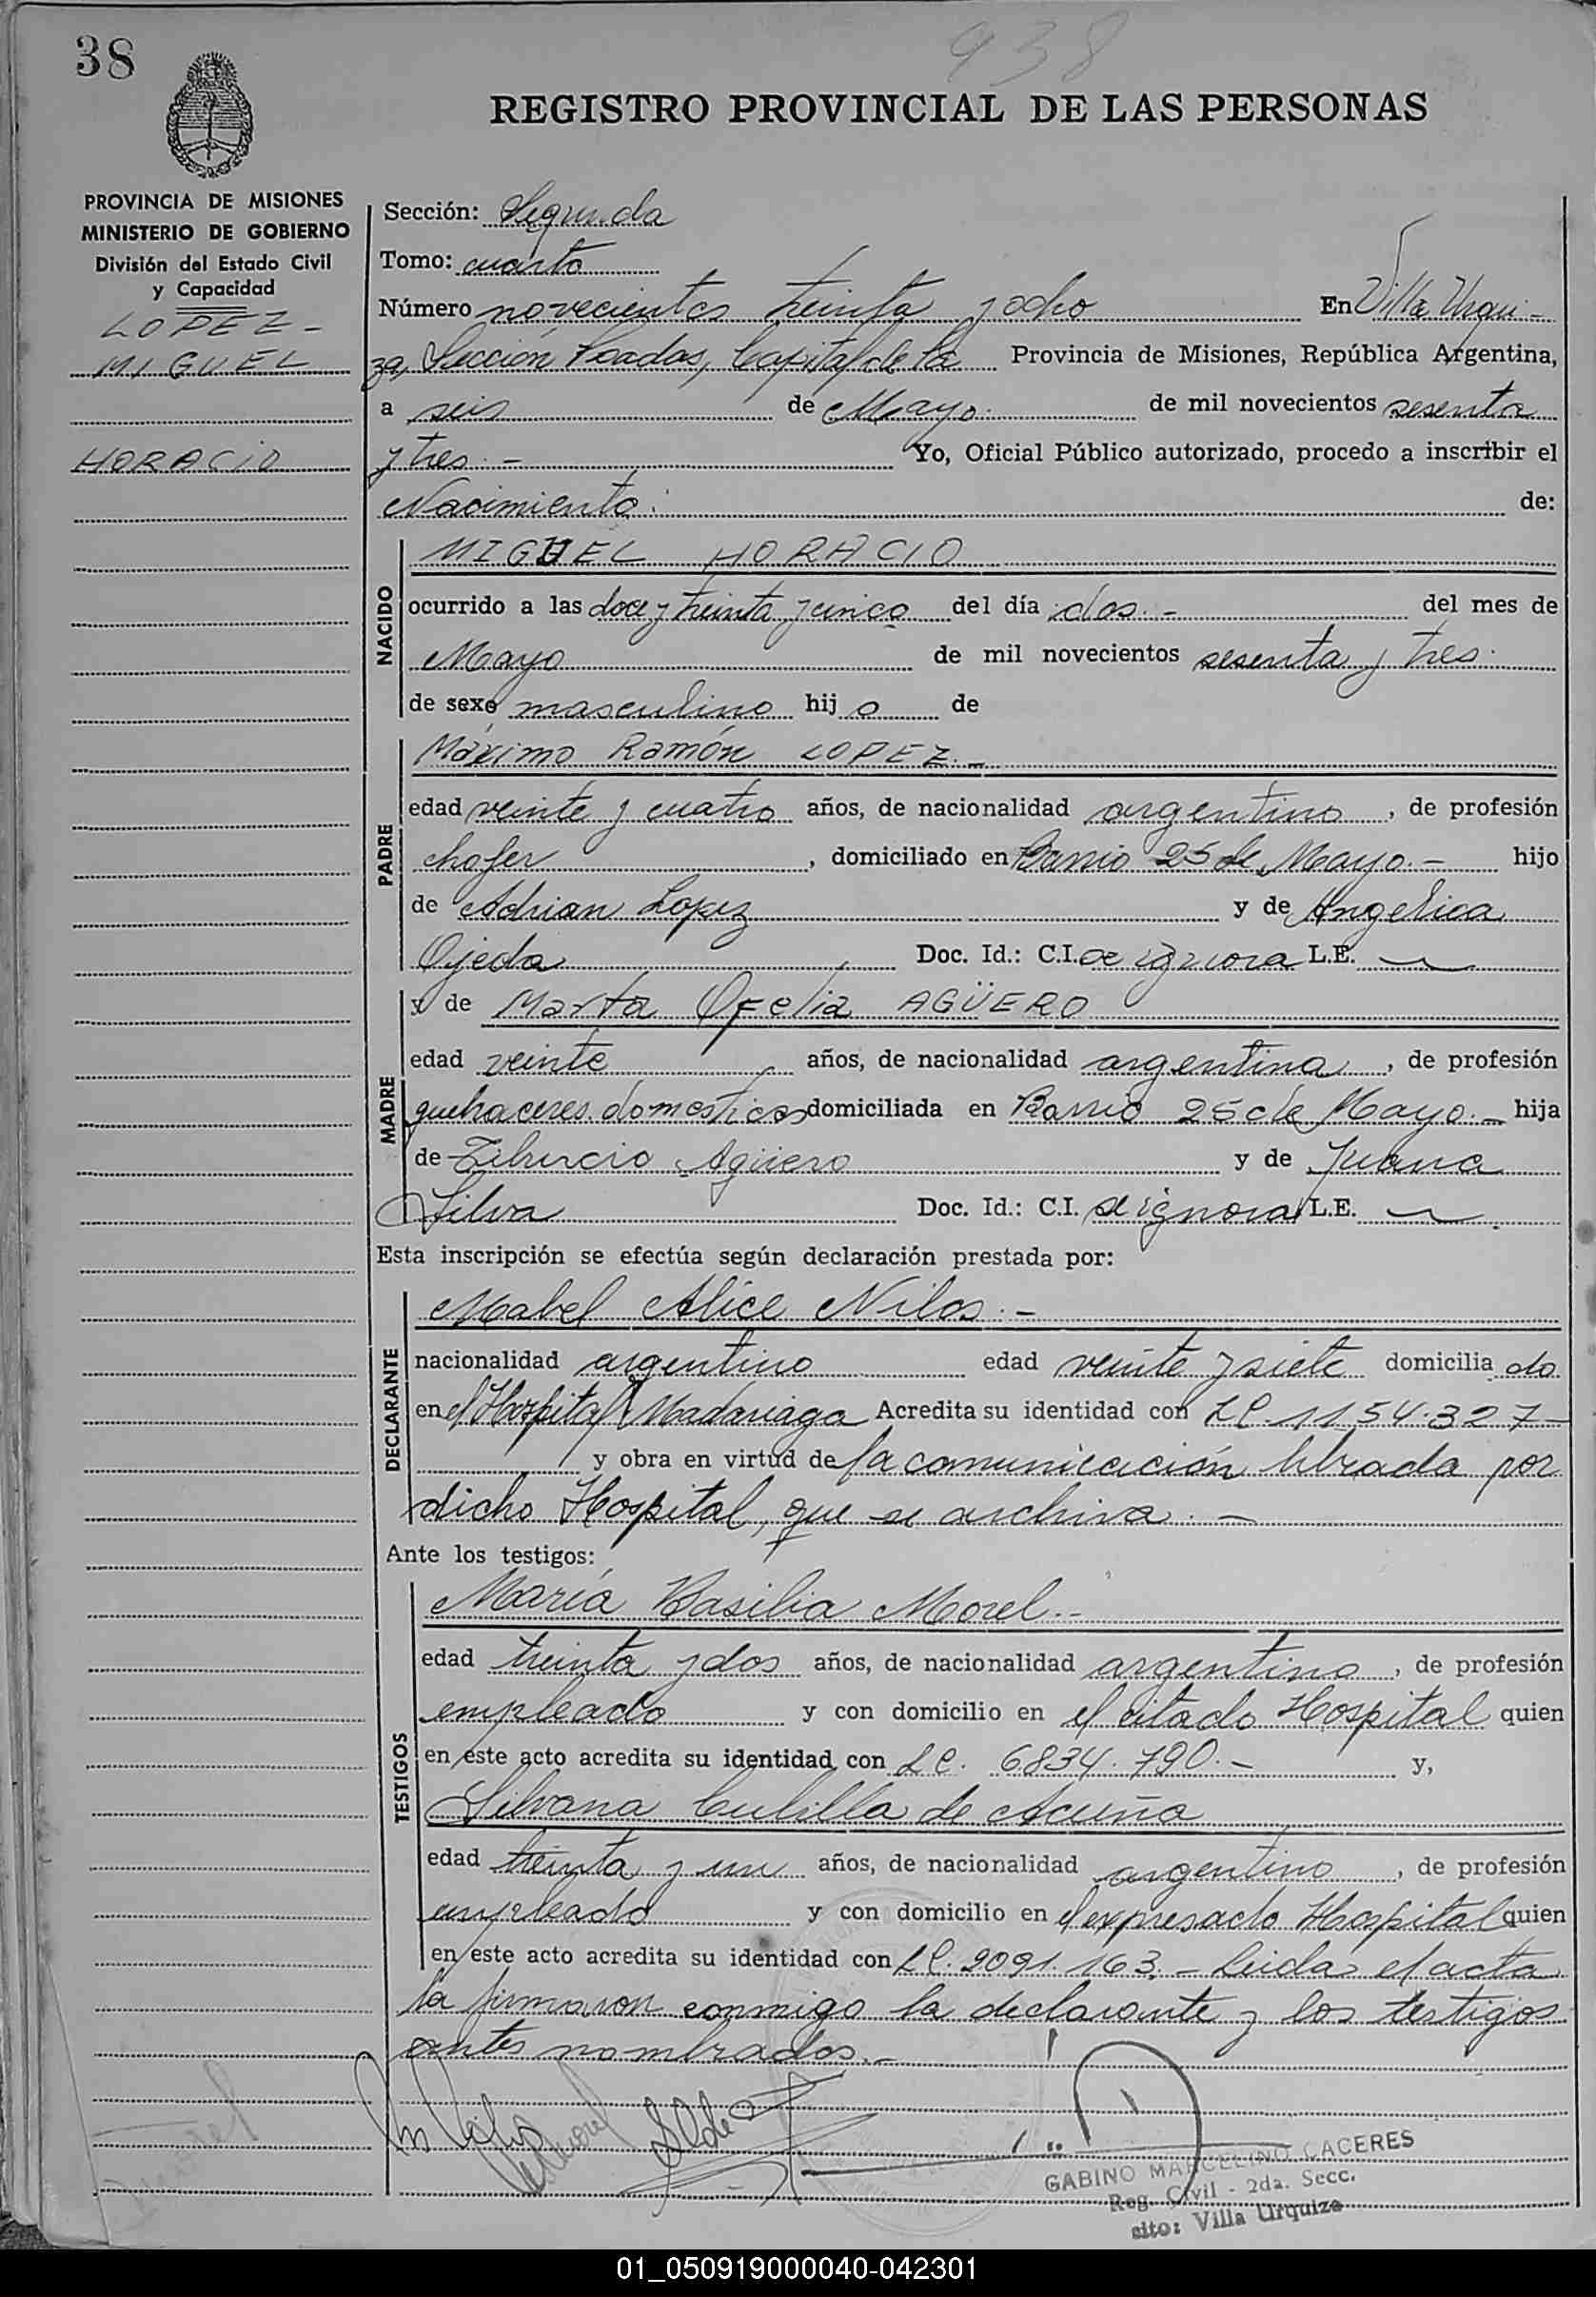 38
938
REGISTRO PROVINCIAL DE LAS PERSONAS
PROVINCIA DE MISIONES
MINISTERIO DE GOBIERNO
División del Estado Civil
y Capacidad
LOPEZ-
MIGUEL
HORACIO
Sección: Segunda
Tomo: cuarto
Número novecientos treinta y ocho En Villa Urqui-
za, Sección Posadas, Capital de la Provincia de Misiones, República Argentina,
a seis de Mayo de mil novecientos sesenta
y tres.- Yo, Oficial Público autorizado, procedo a inscribir el
Nacimiento: de:
NACIDO
MIGUEL HORACIO
ocurrido a las doce y treinta y cinco del día dos.- del mes de
Mayo de mil novecientos sesenta y tres.
de sexo masculino hijo de
PADRE
Máximo Ramón LOPEZ.-
edad veinte y cuatro años, de nacionalidad argentino, de profesión
chofer, domiciliado en Barrio 25 de Mayo.- hijo
de Adrian Lopez y de Angelica
Ojeda Doc. Id.: C.I. se ignora L.E. —
MADRE
y de Marta Ofelia AGÜERO
edad veinte años, de nacionalidad argentina, de profesión
quehaceres domesticos domiciliada en Barrio 25 de Mayo.- hija
de Tiburcio Agüero y de Juana
Silva Doc. Id.: C.I. se ignora L.E. —
Esta inscripción se efectúa según declaración prestada por:
DECLARANTE
Mabel Alice Nilos.-
nacionalidad argentino edad veinte y siete domiciliado
en el Hospital Madariaga Acredita su identidad con LC. 1154.327-
y obra en virtud de la comunicación librada por
dicho Hospital, que se archiva.-
Ante los testigos:
TESTIGOS
María Basilia Morel.-
edad treinta y dos años, de nacionalidad argentino, de profesión
empleado y con domicilio en el citado Hospital quien
en este acto acredita su identidad con LC. 6834.790.- y,
Silvana Cubilla de Acuña
edad treinta y un años, de nacionalidad argentino, de profesión
empleado y con domicilio en el expresado Hospital quien
en este acto acredita su identidad con LC. 2091.163.- Leida el acta
la firmaron conmigo la declarante y los testigos
antes nombrados.-
GABINO MARCELINO CACERES
Reg. Civil - 2da. Secc.
sito: Villa Urquiza
01_050919000040-042301